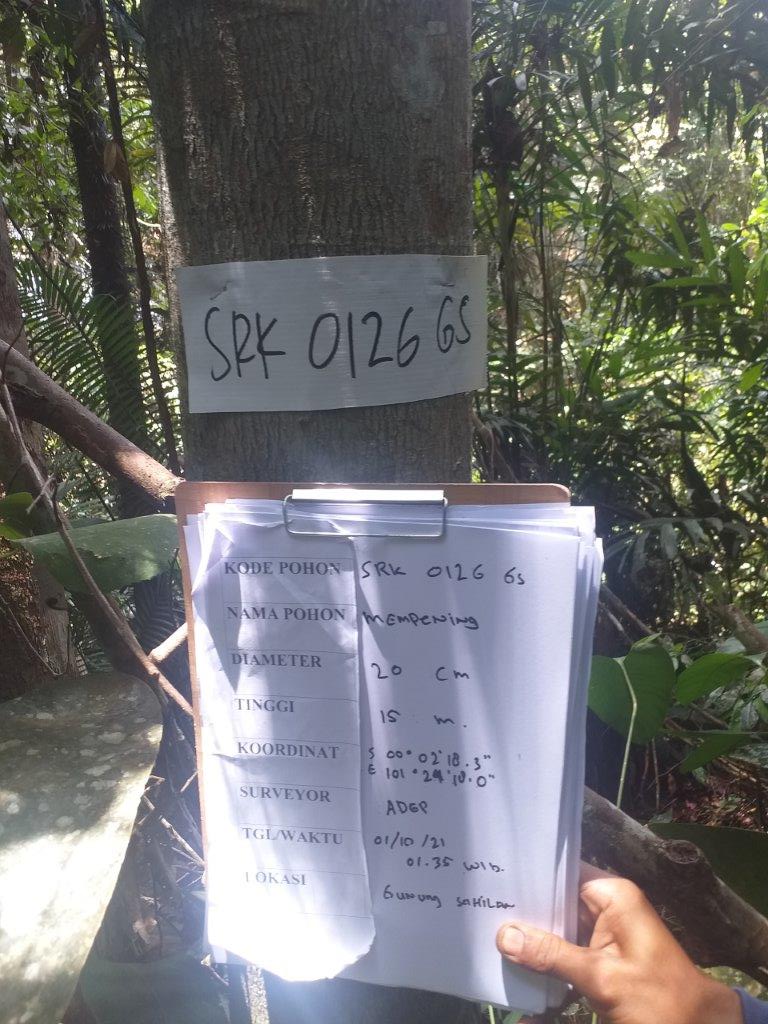 SRK 0126 GS
KODE POHON SRK 0126 GS
NAMA POHON MEMPENING
DIAMETER 20 cm
TINGGI 15 m.
KOORDINAT S 00° 02' 18.3"
E 101° 24' 18.0"
SURVEYOR ADEP
TGL/WAKTU 01/10/21
01.35 WIB.
LOKASI Gunung SAHILAN